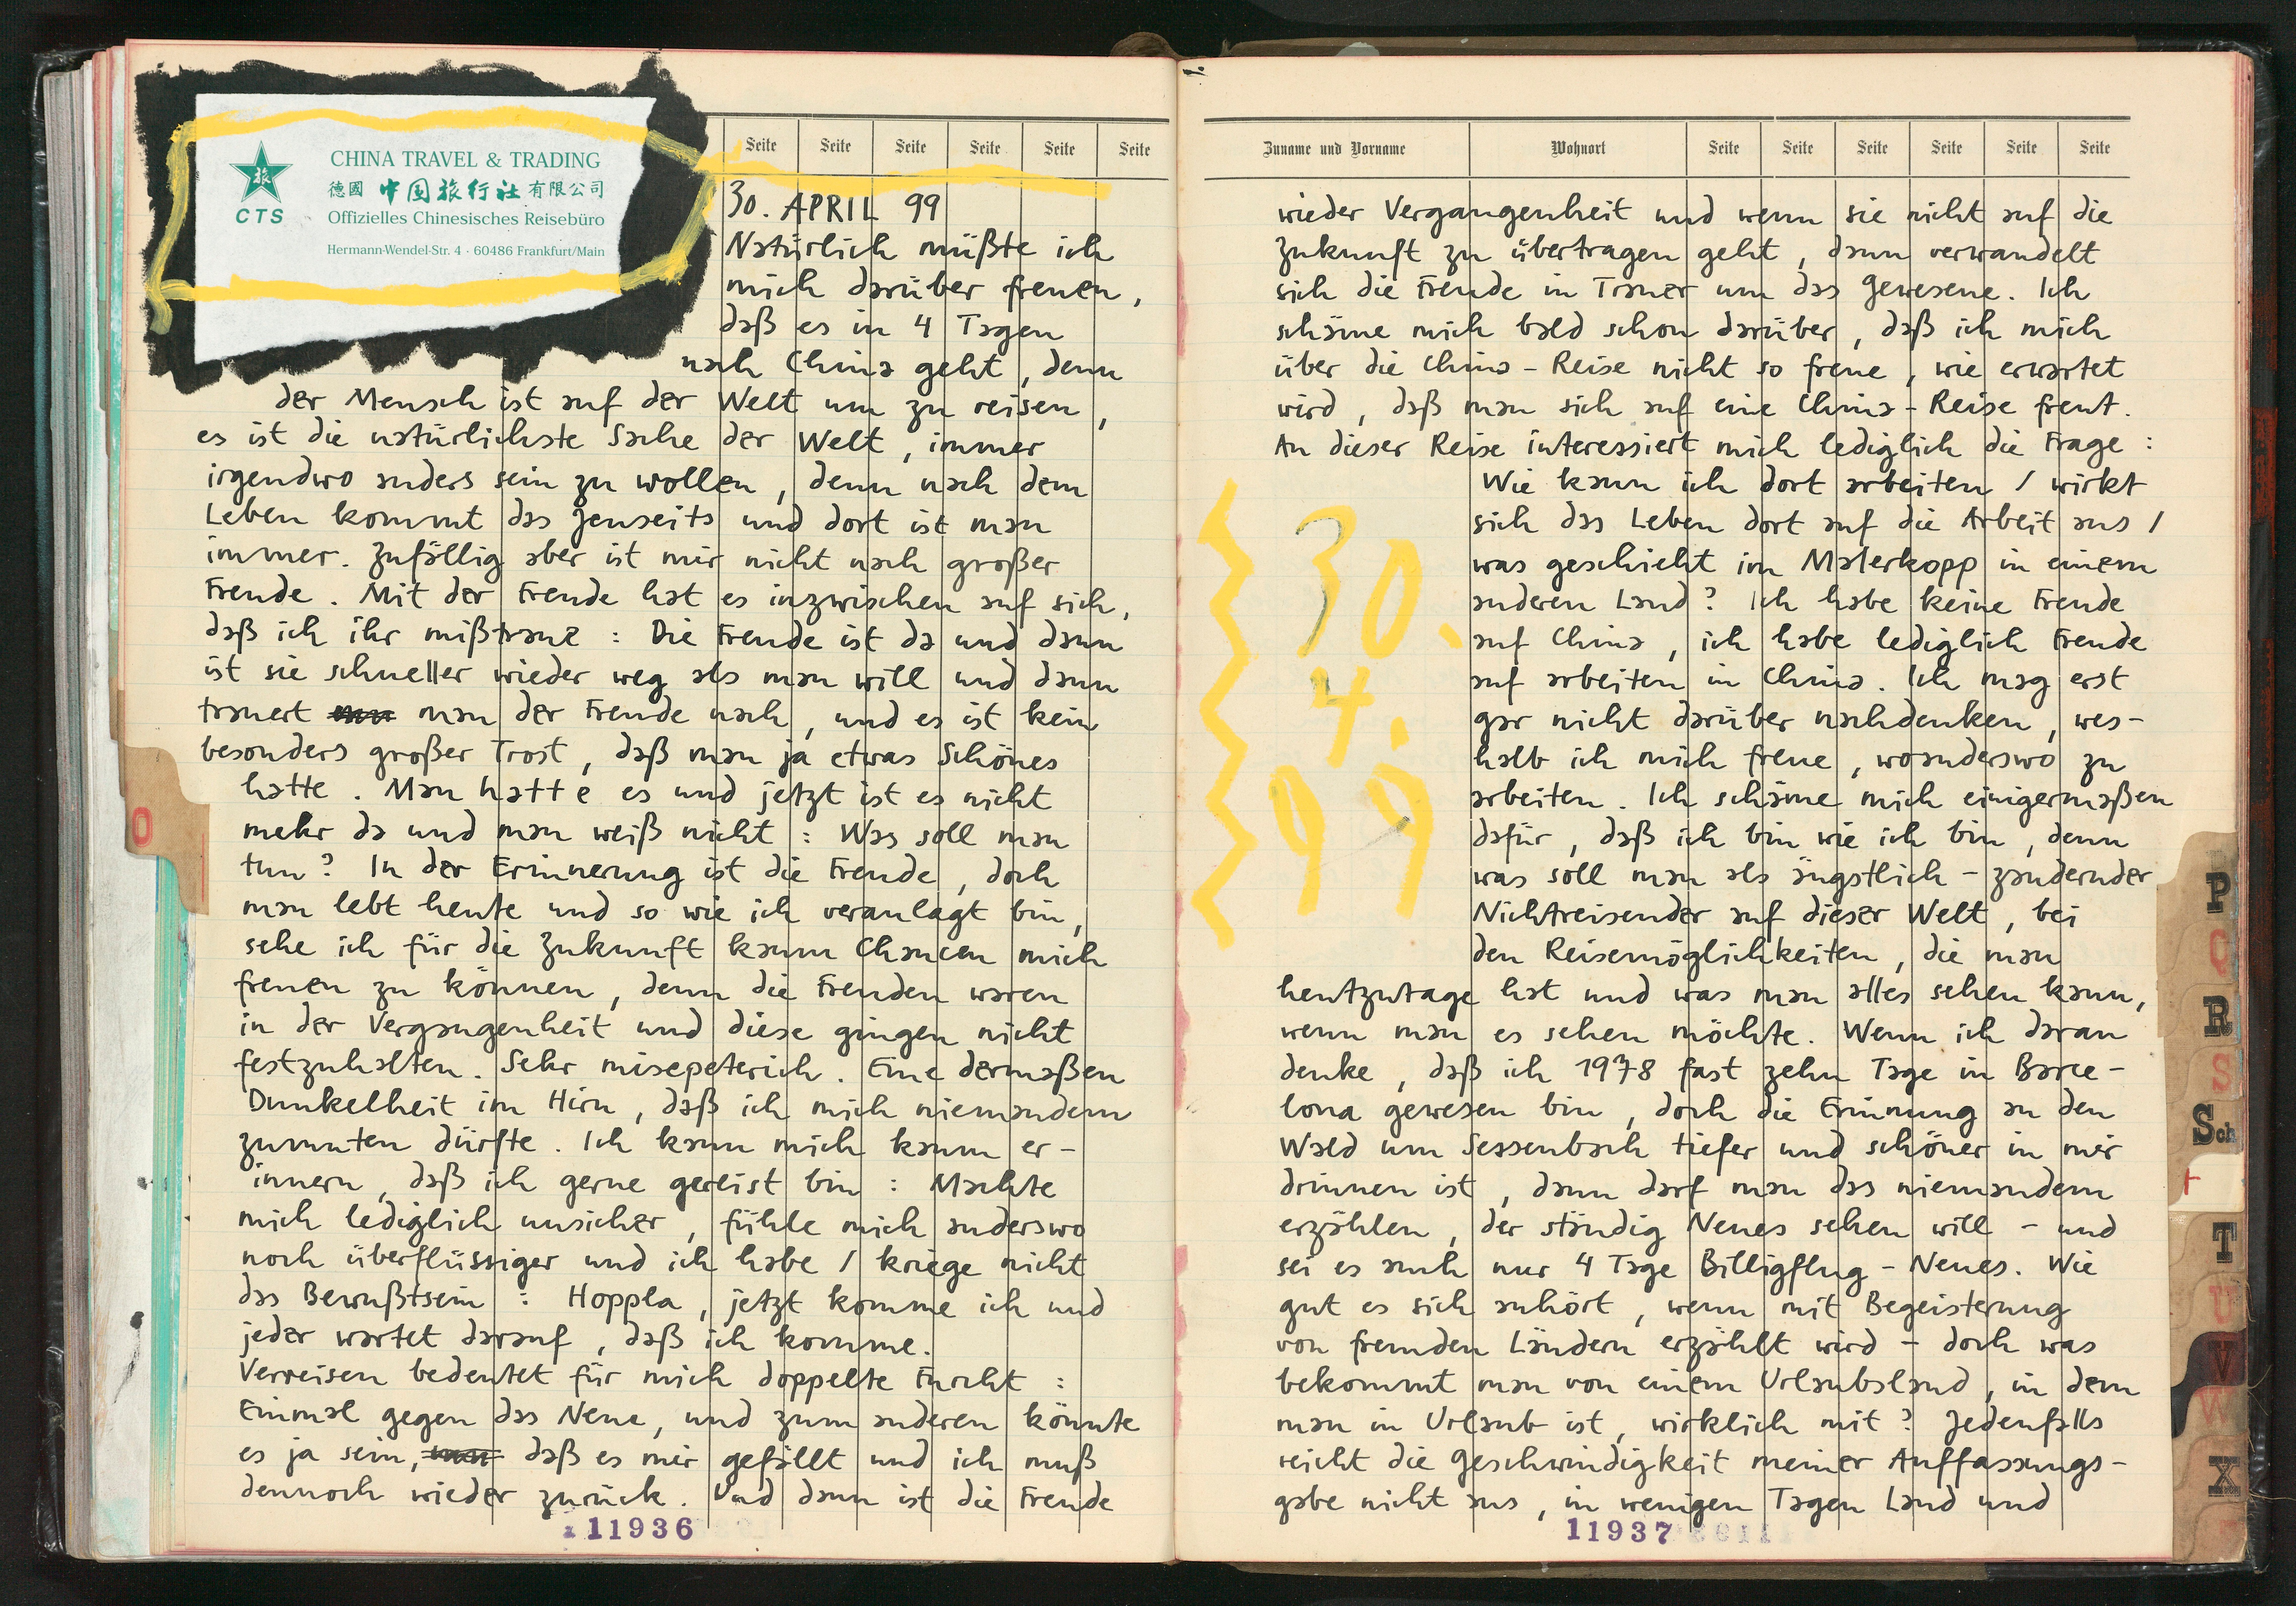 CHINA TRAVEL & TRADING
德國 中国旅行社 有限公司
旅
CTS
Offizielles Chinesisches Reisebüro
Hermann-Wendel-Str. 4 · 60486 Frankfurt/Main
Seite Seite Seite Seite Seite Seite
30. APRIL 99
Natürlich müßte ich
mich darüber freuen,
daß es in 4 Tagen
nach China geht, denn
der Mensch ist auf der Welt um zu reisen,
es ist die natürlichste Sache der Welt, immer
irgendwo anders sein zu wollen, denn nach dem
Leben kommt das Jenseits und dort ist man
immer. Zufällig aber ist mir nicht nach großer
Freude. Mit der Freude hat es inzwischen auf sich,
daß ich ihr mißtraue : Die Freude ist da und dann
ist sie schneller wieder weg als man will und dann
trauert man der Freude nach, und es ist kein
besonders großer Trost, daß man ja etwas Schönes
hatte. Man hatte es und jetzt ist es nicht
mehr da und man weiß nicht : Was soll man
tun? In der Erinnerung ist die Freude, doch
man lebt heute und so wie ich veranlagt bin,
sehe ich für die Zukunft kaum Chancen mich
freuen zu können, denn die Freuden waren
in der Vergangenheit und diese gingen nicht
festzuhalten. Sehr miesepeterich. Eine dermaßen
Dunkelheit im Hirn, daß ich mich niemandem
zumuten dürfte. Ich kann mich kaum er-
innern, daß ich gerne gereist bin : Machte
mich lediglich unsicher, fühle mich anderswo
noch überflüssiger und ich habe / kriege nicht
das Bewußtsein : Hoppla, jetzt komme ich und
jeder wartet darauf, daß ich komme.
Verreisen bedeutet für mich doppelte Furcht :
Einmal gegen das Neue, und zum anderen könnte
es ja sein, daß es mir gefällt und ich muß
dennoch wieder zurück. Und dann ist die Freude
11936
O
Zuname und Vorname Wohnort Seite Seite Seite Seite Seite Seite
wieder Vergangenheit und wenn sie nicht auf die
Zukunft zu übertragen geht, dann verwandelt
sich die Freude in Trauer um das Gewesene. Ich
schäme mich bald schon darüber, daß ich mich
über die China-Reise nicht so freue, wie erwartet
wird, daß man sich auf eine China-Reise freut.
An dieser Reise interessiert mich lediglich die Frage :
Wie kann ich dort arbeiten / wirkt
sich das Leben dort auf die Arbeit aus /
was geschieht im Malerkopp in einem
anderen Land? Ich habe keine Freude
auf China, ich habe lediglich Freude
auf arbeiten in China. Ich mag erst
gar nicht darüber nachdenken, wes-
halb ich mich freue, woanderswo zu
arbeiten. Ich schäme mich einigermaßen
dafür, daß ich bin wie ich bin, denn
was soll man als ängstlich-zaudernder
Nichtreisender auf dieser Welt, bei
den Reisemöglichkeiten, die man
heutzutage hat und was man alles sehen kann,
wenn man es sehen möchte. Wenn ich daran
denke, daß ich 1978 fast zehn Tage in Barce-
lona gewesen bin, doch die Erinnung an den
Wald um Sessenbach tiefer und schöner in mir
drinnen ist, dann darf man das niemandem
erzählen, der ständig Neues sehen will - und
sei es auch nur 4 Tage Billigflug-Neues. Wie
gut es sich anhört, wenn mit Begeisterung
von fremden Ländern erzählt wird - doch was
bekommt man von einem Urlaubsland, in dem
man in Urlaub ist, wirklich mit? Jedenfalls
reicht die Geschwindigkeit meiner Auffassungs-
gabe nicht aus, in wenigen Tagen Land und
30.
4.
99
11937
P
Q
R
S
Sch
T
U
V
W
X